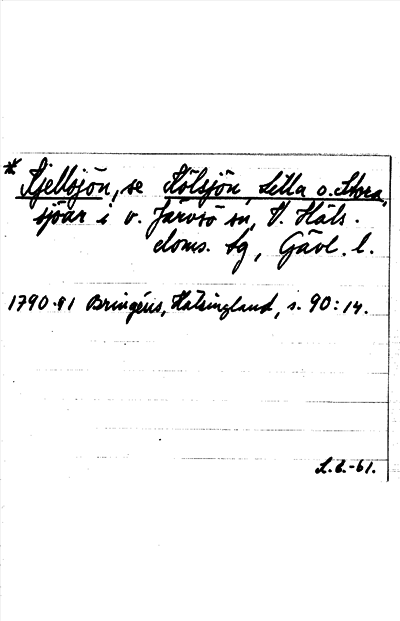 * Kjellsjön, se Kölsjön, Lilla o. Stora,
sjöar i v. Järvsö sn, V. Häls.
doms. tg, Gävl. l.
1790-91 Bringéus, Hälsingland, s. 90:14.
L.L.-61.